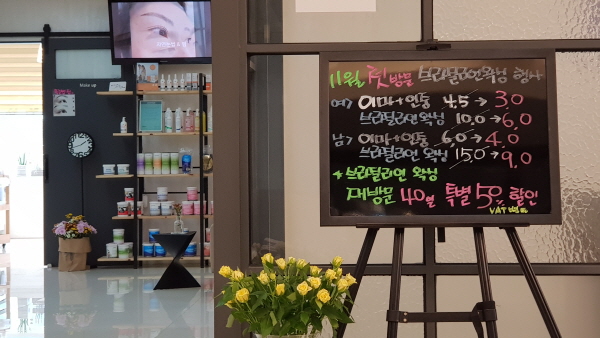 Make up
11월 첫방문 브라질리언왁싱 행사
여) 이마+인중 4.5→3.0
브라질리언 왁싱 10.0→6.0
남) 이마+인중 6.0→4.0
브라질리언 왁싱 15.0→9.0
브라질리언 왁싱
재방문 40일 특별 50% 할인
VAT 별도